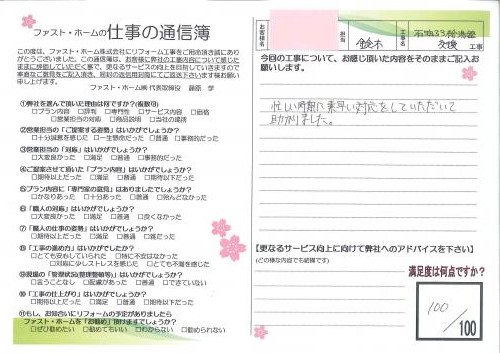 ファスト・ホームの仕事の通信簿
この度は、ファスト・ホーム株式会社にリフォーム工事をご用命頂き誠にあり
がとうございました。この通信簿は、お客様に弊社の工事内容について感じた
ままに評価していただく事で、更なるサービスの向上を目指していきますので
率直なご意見をご記入頂き、同封の返信用封筒にてご返送下さいます様お願い
申し上げます。
ファスト・ホーム㈱ 代表取締役 藤原 学
①弊社を選んで頂いた理由は何ですか?(複数可)
□プラン内容 □評判 □専門性 □サービス内容 □価格
□営業担当の対応 □商品説明 □当社の場所
②営業担当の「ご提案する姿勢」はいかがでしょうか?
□十分誠意を感じた □一生懸命だった □普通 □事務的だった
③営業担当の「対応」はいかがでしょうか?
□大変良かった □満足 □普通 □事務的だった
④ご提案させて頂いた「プラン内容」はいかがでしょうか?
□期待以上だった □満足 □普通 □期待以下だった
⑤プラン内容に「専門家の意見」はありましたでしょうか?
□かなりあった □十分あった □普通 □殆んどなかった
⑥「職人の対応」はいかがでしょうか?
□大変良かった □満足 □普通 □良くなかった
⑦「職人の仕事の姿勢」はいかがでしょうか?
□期待以上だった □満足 □普通 □雑だった
⑧「工事の進め方」はいかがでしたでしょうか?
□とても安心していられた □特に不安はなかった
□対応に少しストレスを感じた □とても不満を感じた
⑨現場の「管理状況(整理整頓等)」はいかがでしょうか?
□言うことなし □配慮があった □普通 □できていない
⑩「工事の仕上がり」はいかがでしょうか?
□期待以上だった □満足 □普通 □期待以下だった
⑪もし、お知合いにリフォームの予定がありましたら
ファスト・ホームを「お勧め」頂けますでしょうか?
□ぜひ勧めたい □勧めてもいい □わからない □勧められない
お客様名 担当 鈴木 工事名 石油給湯器
交換 工事
今回の工事について、お感じ頂いた内容をそのままご記入お
願いします。
忙しい時期に素早い対応をしていただいて
助かりました。
【更なるサービス向上に向けて弊社へのアドバイスを下さい】
(どの様な内容でも結構です)
満足度は何点ですか?
100/100